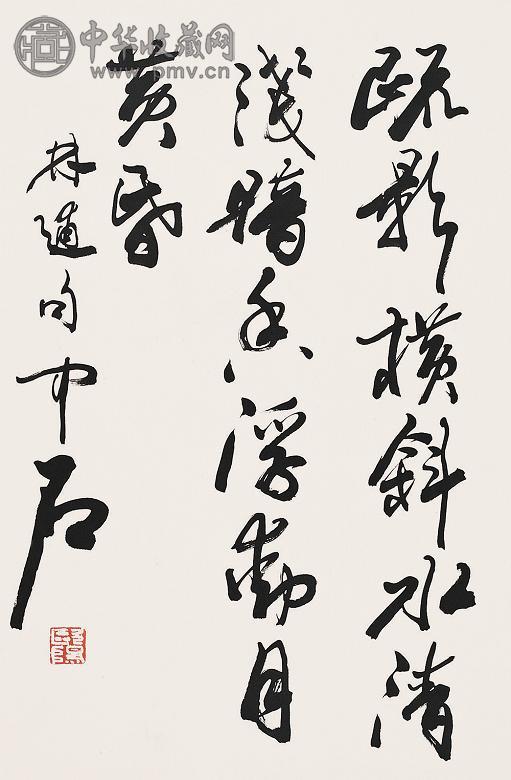 疏影横斜水清
浅暗香浮动月
黄昏
林逋句中石
中华收藏网
www.pmv.cn